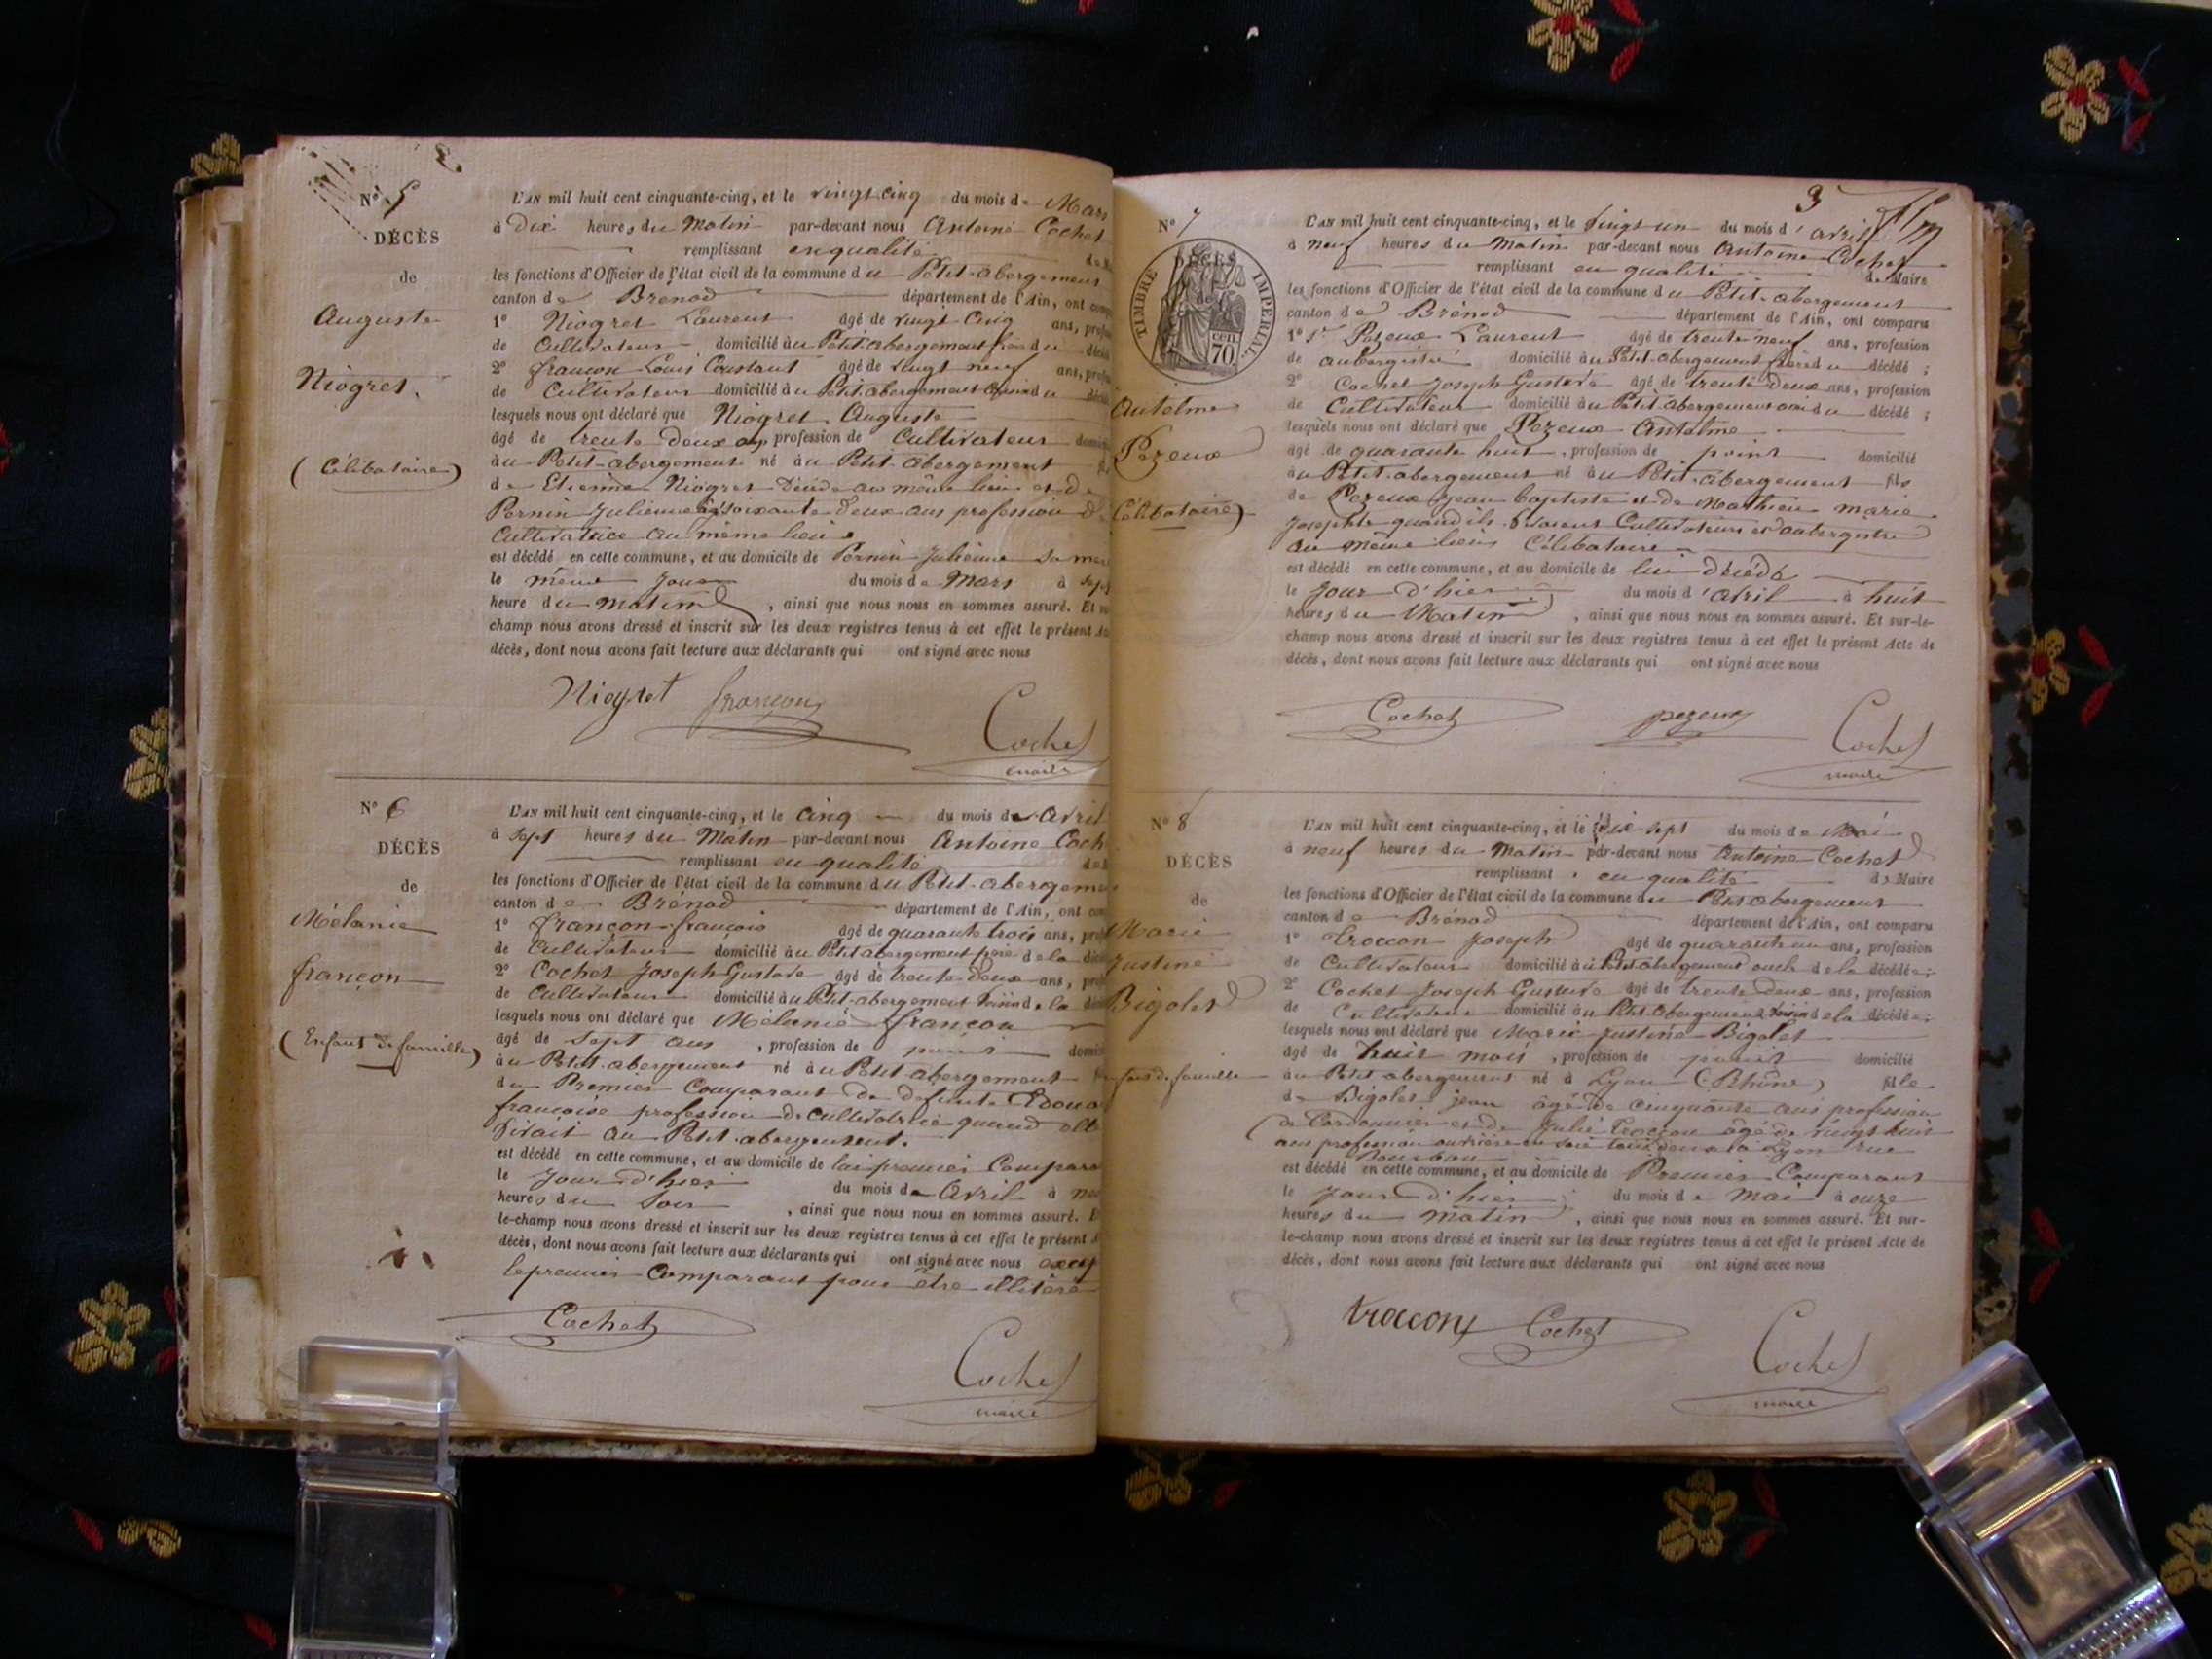 N° 5
DÉCÈS
de
Auguste
Niogret.
(Célibataire)
L'AN mil huit cent cinquante-cinq, et le vingt cinq du mois de Mars
à Dix heures du Matin par-devant nous Antoine Cochet
remplissant en qualité
les fonctions d'Officier de l'état civil de la commune du Petit-abergement
canton de Brénod département de l'Ain, ont
1° Niogret Laurent âgé de vingt Cinq ans,
de Cultivateur domicilié au Petit-abergement du
2° francon Louis Constant âgé de vingt neuf ans,
de Cultivateur domicilié au Petit-abergement du
lesquels nous ont déclaré que Niogret Auguste
âgé de trente deux ans profession de Cultivateur
au Petit-abergement né au Petit-abergement
de Etienne Niogret Décédé au même lieu et de
Pernin Julienne âgé soixante deux ans profession de
Cultivatrice au même lieu
est décédé en cette commune, et au domicile de Pernin Julienne sa
le même Jour du mois de Mars à
heure du matin , ainsi que nous nous en sommes assuré. Et
champ nous avons dressé et inscrit sur les deux registres tenus à cet effet le présent
décès, dont nous avons fait lecture aux déclarants qui ont signé avec nous
Niogret françon Cochet
maire
N° 6
DÉCÈS
de
Mélanie
françon
(Enfant de famille)
L'AN mil huit cent cinquante-cinq, et le cinq du mois de Avril
à sept heures du Matin par-devant nous Antoine Coch
remplissant en qualité
les fonctions d'Officier de l'état civil de la commune du Petit-abergeme
canton de Brénod département de l'Ain, ont
1° françon françois âgé de quarante trois ans,
de Cultivateur domicilié au Petit abergement père de la
2° Cochet Joseph Gustave âgé de trente-deux ans,
de Cultivateur domicilié au Petit-abergement voisin de la
lesquels nous ont déclaré que Mélanie françon
âgé de sept ans , profession de point
au Petit-abergement né au Petit abergement
du Premier Comparant De defunte
françoise profession de cultivatrice quand elle
vivait au Petit-abergement.
est décédé en cette commune, et au domicile de lui premier
le Jour d'hier du mois de Avril à
heures du Soir , ainsi que nous nous en sommes assuré.
le-champ nous avons dressé et inscrit sur les deux registres tenus à cet effet le présent
décès, dont nous avons fait lecture aux déclarants qui ont signé avec nous
le premier Comparant pour être
Cochet
Cochet
maire
3
N° 7
TIMBRE IMPÉRIAL
DÉCÈS
de
70 cen
Antelme
Pezeux
(Célibataire)
L'AN mil huit cent cinquante-cinq, et le Vingt un du mois d'avril
à neuf heures du Matin par-devant nous Antoine Cochet
remplissant en qualité de Maire
les fonctions d'Officier de l'état civil de la commune du Petit-abergement
canton de Brénod département de l'Ain, ont comparu
1° Pezeux Laurent âgé de trente neuf ans, profession
de aubergiste domicilié au Petit abergement frère du décédé ;
2° Cochet Joseph Gustave âgé de trente Deux ans, profession
de Cultivateur domicilié au Petit abergement du décédé ;
lesquels nous ont déclaré que Pezeux Antelme
âgé de quarante huit , profession de point domicilié
au Petit abergement né au Petit-abergement fils
de Pezeux Jean baptiste et de Mathieu marie
Josephte quand ils vivaient Cultivateurs et
au même lieu Célibataire
est décédé en cette commune, et au domicile de lui décédé
le Jour d'hier du mois d'avril à huit
heures du Matin , ainsi que nous nous en sommes assuré. Et sur-le-
champ nous avons dressé et inscrit sur les deux registres tenus à cet effet le présent Acte de
décès, dont nous avons fait lecture aux déclarants qui ont signé avec nous
Cochet pezeux Cochet
maire
N° 8
DÉCÈS
de
Marie
Justine
Bigolet
L'AN mil huit cent cinquante-cinq, et le dix sept du mois de Mai
à neuf heures du Matin par-devant nous Antoine Cochet
remplissant en qualité de Maire
les fonctions d'Officier de l'état civil de la commune du Petit abergement
canton de Brénod département de l'Ain, ont comparu
1° Troccon Joseph âgé de quarante un ans, profession
de Cultivateur domicilié au Petit abergement oncle de la décédée ;
2° Cochet Joseph Gustave âgé de trente deux ans, profession
de Cultivateur domicilié au Petit abergement voisin de la décédée ;
lesquels nous ont déclaré que Marie Justine Bigolet
âgé de huit mois , profession de point domicilié
au Petit abergement né à Lyon (Rhône) fille
de Bigolet jean âgé de cinquante ans profession
de Cordonnier et de Julie Troccon âgé de vingt huit
ans profession ouvrière en soie tout deux à Lyon rue
est décédé en cette commune, et au domicile de Premier Comparant
le Jour d'hier du mois de Mai à onze
heures du matin , ainsi que nous nous en sommes assuré. Et sur-
le-champ nous avons dressé et inscrit sur les deux registres tenus à cet effet le présent Acte de
décès, dont nous avons fait lecture aux déclarants qui ont signé avec nous
troccon Cochet
Cochet
maire